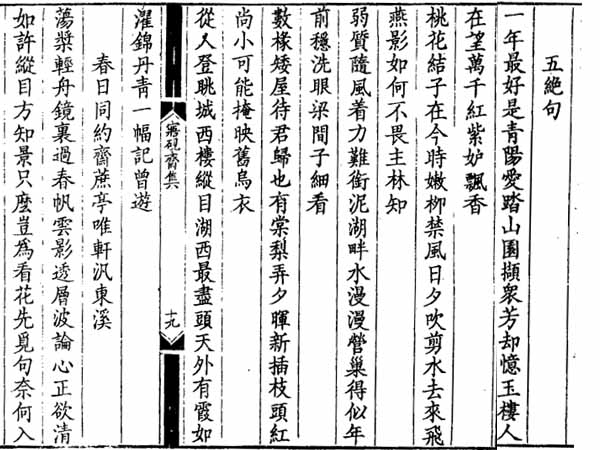 五絕句
一年最好是青陽愛踏山園擷衆芳却憶玉樓人
在望萬千紅紫妒飄香
桃花結子在今時嫩柳禁風日夕吹剪水去來飛
燕影如何不畏主林知
弱質隨風着力難銜泥湖畔水漫漫營巢得似年
前穩洗眼梁間子細看
數椽矮屋待君歸也有棠梨弄夕暉新插枝頭紅
尚小可能掩映舊烏衣
從人登眺城西樓縱目湖西最盡頭天外有霞如
寤硯齋集
十九
濯錦丹青一幅記曾遊
春日同約齋蔗亭唯軒汎東溪
蕩槳輕舟鏡裏過春帆雲影透層波論心正欲清
如許縱目方知景只麼豈為看花先覓句奈何入